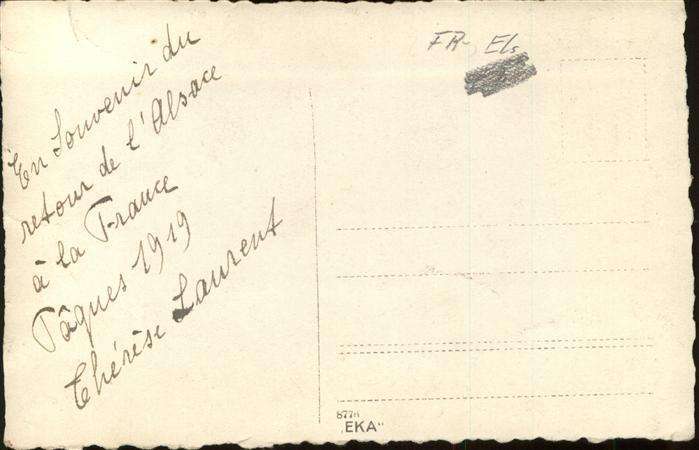 En Souvenir du
retour de l'Alsace
à la France
Pâques 1919
Thérèse Laurent
FR- Els
"EKA"